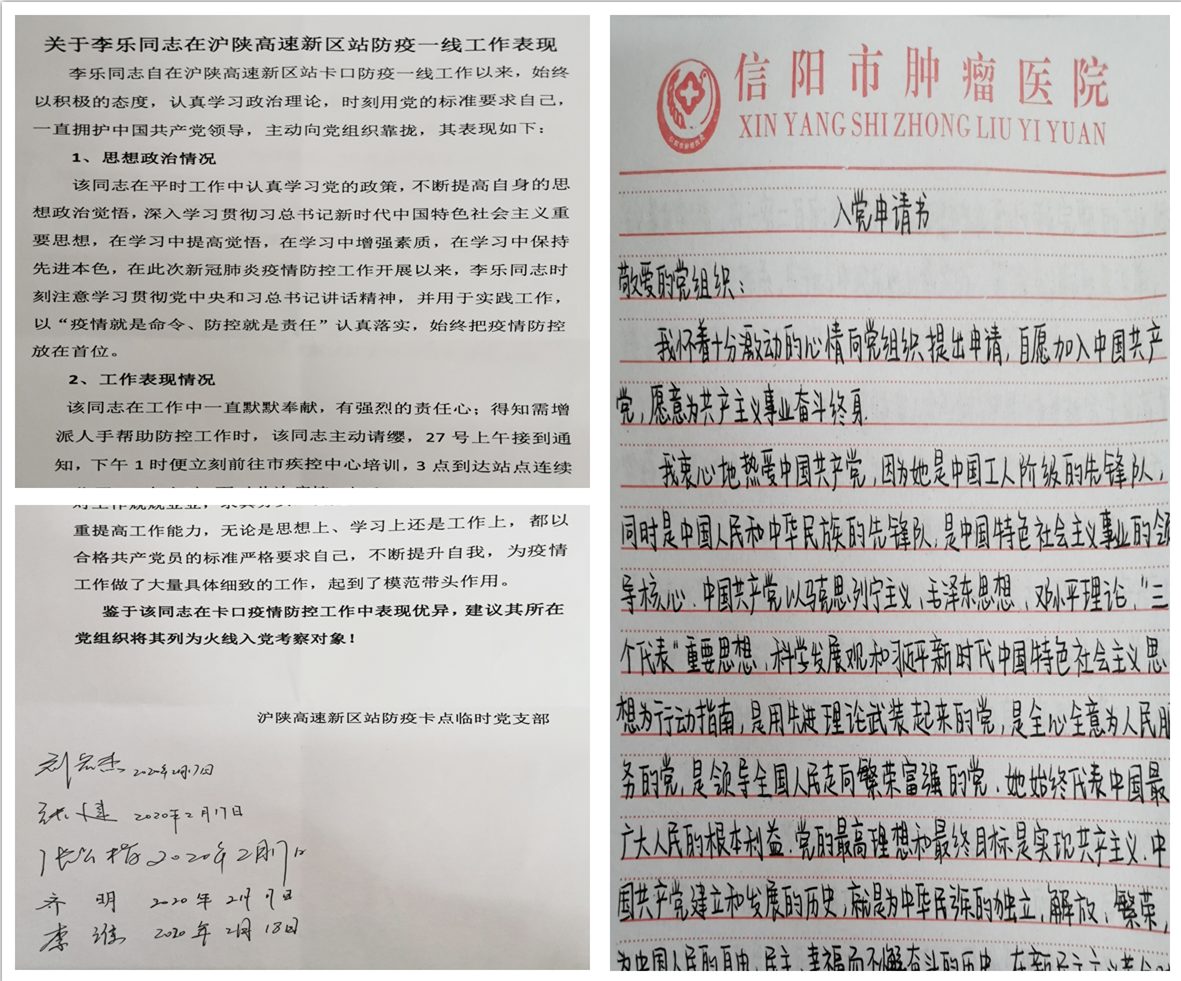 关于李乐同志在沪陕高速新区站防疫一线工作表现
李乐同志自在沪陕高速新区站卡口防疫一线工作以来，始终
以积极的态度，认真学习政治理论，时刻用党的标准要求自己，
一直拥护中国共产党领导，主动向党组织靠拢，其表现如下：
1、思想政治情况
该同志在平时工作中认真学习党的政策，不断提高自身的思
想政治觉悟，深入学习贯彻习总书记新时代中国特色社会主义重
要思想，在学习中提高觉悟，在学习中增强素质，在学习中保持
先进本色，在此次新冠肺炎疫情防控工作开展以来，李乐同志时
刻注意学习贯彻党中央和习总书记讲话精神，并用于实践工作，
以“疫情就是命令、防控就是责任”认真落实，始终把疫情防控
放在首位。
2、工作表现情况
该同志在工作中一直默默奉献，有强烈的责任心；得知需增
派人手帮助防控工作时，该同志主动请缨，27 号上午接到通
知，下午 1 时便立刻前往市疾控中心培训，3 点到达站点连续
对工作兢兢业业，
重提高工作能力，无论是思想上、学习上还是工作上，都以
合格共产党员的标准严格要求自己，不断提升自我，为疫情
工作做了大量具体细致的工作，起到了模范带头作用。
鉴于该同志在卡口疫情防控工作中表现优异，建议其所在
党组织将其列为火线入党考察对象！
沪陕高速新区站防疫卡点临时党支部
2020年2月17日
2020年2月17日
2020年2月17日
齐明 2020年2月17日
李 2020年2月18日
信阳市肿瘤医院
XIN YANG SHI ZHONG LIU YI YUAN
入党申请书
敬爱的党组织：
我怀着十分激动的心情向党组织提出申请，自愿加入中国共产
党，愿意为共产主义事业奋斗终身.
我衷心地热爱中国共产党，因为她是中国工人阶级的先锋队，
同时是中国人民和中华民族的先锋队，是中国特色社会主义事业的领
导核心.中国共产党以马克思列宁主义、毛泽东思想、邓小平理论、“三
个代表”重要思想、科学发展观和习近平新时代中国特色社会主义思
想为行动指南，是用先进理论武装起来的党，是全心全意为人民服
务的党，是领导全国人民走向繁荣富强的党.她始终代表中国最
广大人民的根本利益.党的最高理想和最终目标是实现共产主义.中
国共产党建立和发展的历史，就是为中华民族的独立、解放、繁荣，
为中国人民的自由、民主、幸福而不懈奋斗的历史.在新民主主义革命